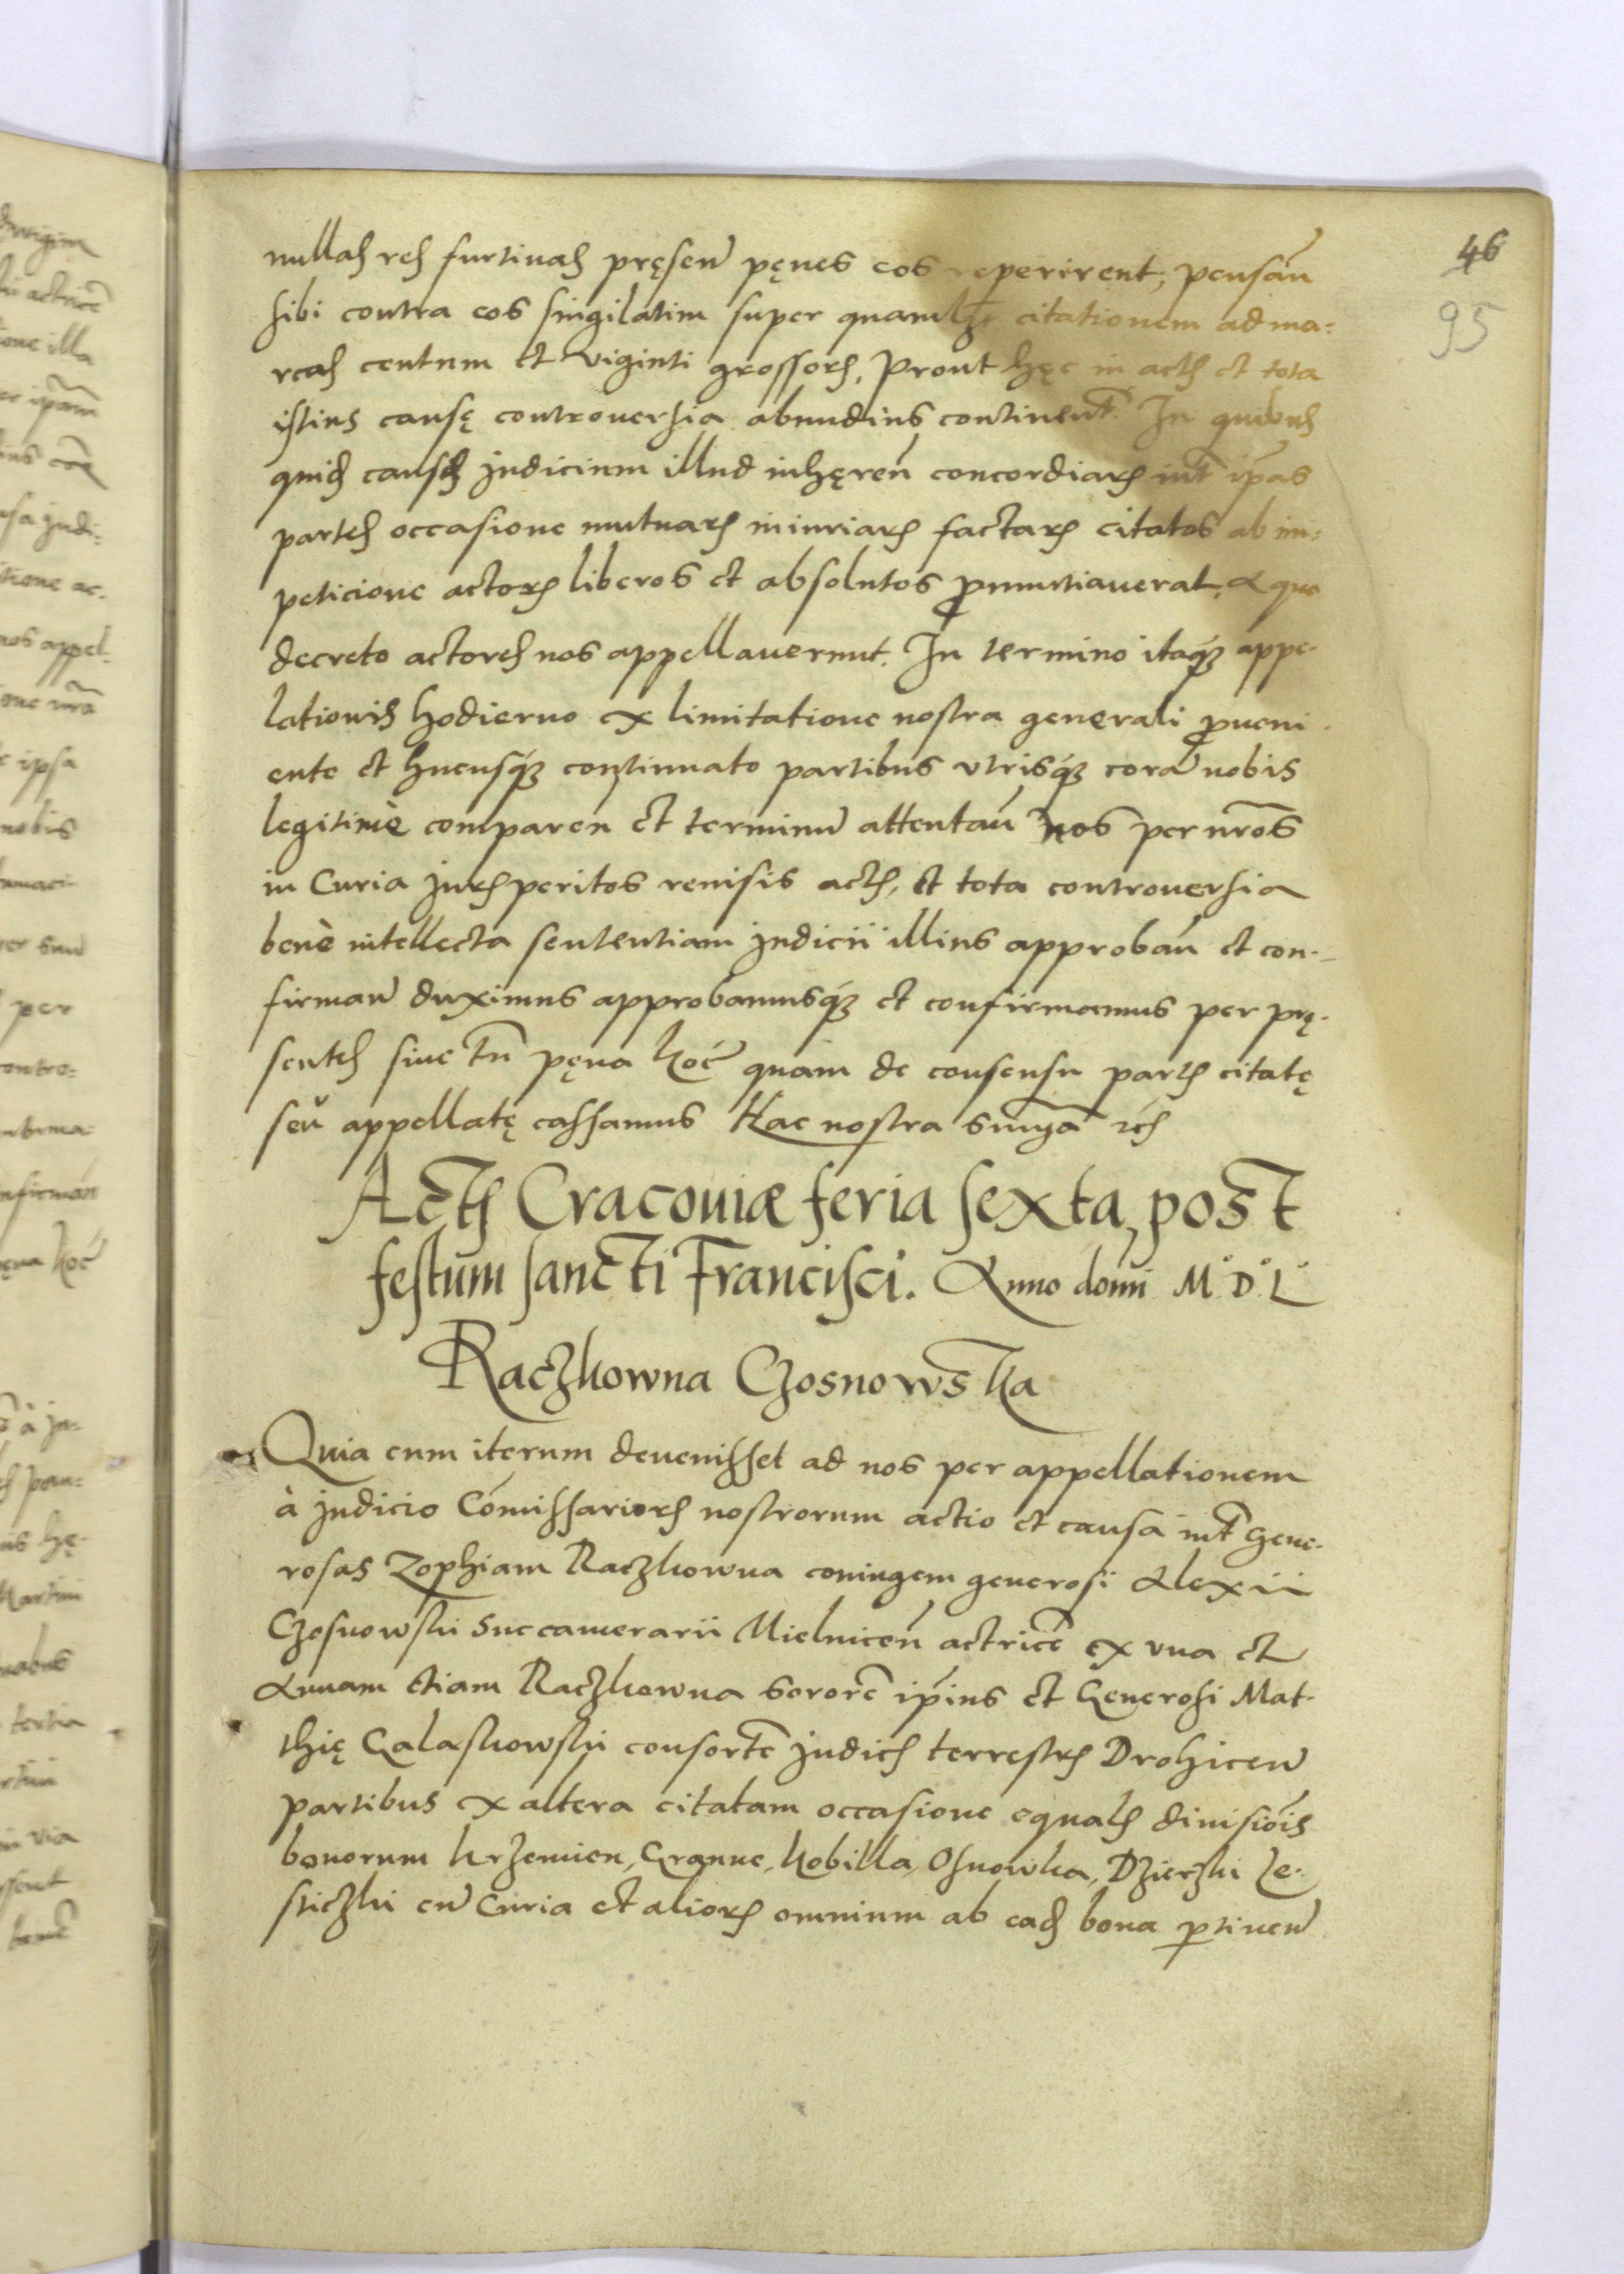 46
95
nullas res furtivas pręsen̄ pęnes eos reperirent, pensan̄
sibi contra eos singilatim super quamlꝫ citationem ad ma:
rcas centum et viginti grossorꝫ, Prout hęc in actis et tota
istius causę controuersia abundius continent̄. In quibus
quidꝫ causis judicium illud inhęren̄ concordiarꝫ int̄ ip̄as
partes occasione mutuarꝫ iniuriarꝫ factarꝫ citatos ab im:
peticione actorꝫ liberos et absolutos ꝓnuntiauerat, A quo
decreto actores nos appellauerunt. In termino itaqꝫ appe-
lationis hodierno ex limitatione nostra generali ꝓueni-
ente et hucusqꝫ continuato partibus vtrisqꝫ corā nobis
legitimè comparen et terminū attentan̄ Nos per nr̄os
in Curia jurisperitos reuisis actis, et tota controuersia
benè intellecta sententiam judicii illius approban̄ et con-
firman̄ duximus approbamusqꝫ et confirmamus per prę-
sentes siue tn̄ pęna koc̄ quam de consensu partis citatę
seu appellatę cassamus Hac nostra sn̄nya rc̄
Actis Cracouiæ feria sexta, post
festum sancti Francisci. Anno domi M.° D.° L.°
Raczkowna Czosnowska
Quia cum iterum deuenisset ad nos per appellationem
à judicio Com̄issariorꝫ nostrorum actio et causa int̄ Gene-
rosas Zophiam Raczkowna coniugem generosi Alexii
Czosnowski Succamerarii Mielnicen̄ actricē ex vna et
Annam etiam Raczkowna sororē ip̄ius et Generosi Mat-
thię Galaskowski consortē judicis terrestris Drohicen̄
partibus ex altera citatam occasione equalis diuisiōis
bonorum krzemien, Granne, kobilla, Osnowka, Dzierzki Le-
sticzki cū Curia et aliorꝫ omnium ab eadꝫ bona ꝑtinen̄